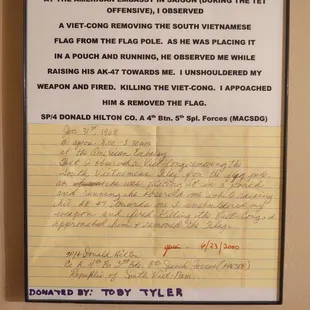 AT THE AMERICAN EMBASSY IN SAIGON (DURING THE TET
OFFENSIVE), I OBSERVED
A VIET-CONG REMOVING THE SOUTH VIETNAMESE
FLAG FROM THE FLAG POLE. AS HE WAS PLACING IT
IN A POUCH AND RUNNING, HE OBSERVED ME WHILE
RAISING HIS AK-47 TOWARDS ME. I UNSHOULDERED MY
WEAPON AND FIRED. KILLING THE VIET-CONG. I APOACHED
HIM & REMOVED THE FLAG.
SP/4 DONALD HILTON CO. A 4th Btn. 5th Spl. Forces (MACSDG)
Jan 31st, 1968
at the American Embassy
South Vietnamese Flag from the flag pole
as he was placing it in a pouch
and running he observed me while raising
his AK 47 towards me I unshouldered my
weapon and fired killing the Viet-Cong. I
approached him & removed the Flag.
4/23/2000
Sp/4 Donald Hilton
Co A, 4th Bn 5th Special Forces (MACSOG)
Republic of South Viet-Nam.
DONATED BY: TOBY TYLER